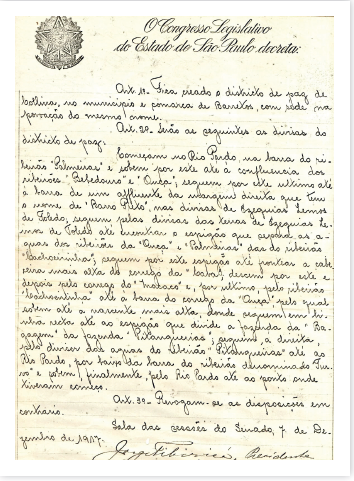 O Congresso Legislativo
do Estado de São Paulo decreta:
Art. 1º. Fica creado o districto de paz de
Collina, no municipio e comarca de Barretos, com séde na
povoação do mesmo nome.
Art. 2º. Serão as seguintes as divisas do
districto de paz:
Começam no Rio Pardo, na barra do ri-
beirão "Palmeiras" e sobem por este até a confluencia dos
ribeirões "Bebedouro" e "Onça"; seguem por este ultimo até
á barra de um affluente da margem direita que tem
o nome de "Barro Preto", nas divisas de Ezequias Lemos
de Toledo, seguem pelas divisas das terras de Ezequias Le-
mos de Toledo até encontrar o espigão que separa as a-
guas dos ribeirões da "Onça" e "Palmeiras" das do ribeirão
"Cachoeirinha"; seguem por este espigão até a cabe-
ceira mais alta do corrego da descem por este e
depois pelo corrego do "Macaco" e, por ultimo, pelo ribeirão
"Cachoeirinha" até á barra do corrego da "Onça" pelo qual
sobem até a nascente mais alta, donde seguem em li-
nha recta até ao espigão que divide a fazenda da "Ba-
gagem" da fazenda "Pitangueiras"; seguem, á direita,
pelo divisor das aguas do ribeirão "Pitangueiras" até ao
Rio Pardo, por baixo da barra do ribeirão denominado
e sobem, finalmente, pelo Rio Pardo até ao ponto onde
tiveram começo.
Art. 3º. Revogam-se as disposições em
contrario.
Sala das sessões do Senado, 7 de De-
zembro de 1917.
Jorge Tibiriçá, Presidente